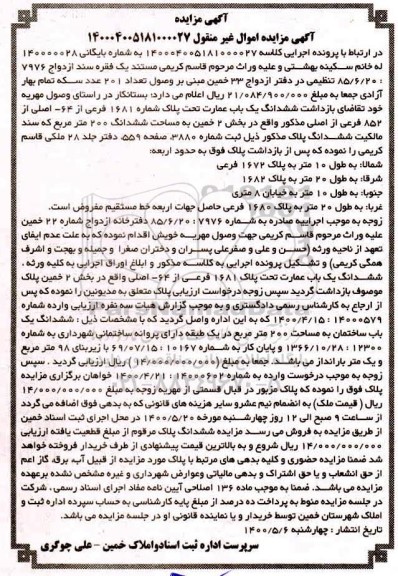 آگهی مزایده
آگهی مزایده اموال غیر منقول ۱۴۰۰۰۴۰۰۵۱۸۱۰۰۰۰۲۷
در ارتباط با پرونده اجرایی کلاسه ۱۴۰۰۰۴۰۰۵۱۸۱۰۰۰۰۲۷ به شماره بایگانی ۱۴۰۰۰۰۰۲۸
له خانم سکینه بهشتی و علیه وراث مرحوم قاسم کریمی مستند یک فقره سند ازدواج ۷۹۷۶
۸۵/۶/۲۰ - تنظیمی در دفتر ازدواج ۳۳ خمین مبنی بر وصول تعداد ۲۰۱ عدد سکه تمام بهار
آزادی جمعا به مبلغ ۲۱/۰۸۴/۹۰۰/۰۰۰ ریال اعلام می دارد؛ بستانکار در راستای وصول مهریه
خود تقاضای بازداشت ششدانگ یک باب عمارت تحت پلاک شماره ۱۶۸۱ فرعی از ۶۴- اصلی از
۸۵۲ فرعی از اصلی مذکور واقع در بخش ۲ خمین به مساحت ششدانگ ۲۰۰ متر مربع که سند
مالکیت ششدانگ پلاک مذکور ذیل ثبت شماره ۳۸۸۰، صفحه ۵۵۹، دفتر جلد ۲۸ ملکی قاسم
کریمی را نموده که پس از بازداشت پلاک فوق به حدود اربعه:
شمالا: به طول ۱۰ متر به پلاک ۱۶۷۲ فرعی
شرقا: به طول ۲۰ متر به پلاک ۱۶۸۲
جنوبا: به طول ۱۰ متر به خیابان ۸ متری
غربا: به طول ۲۰ متر به پلاک ۱۶۸۰ فرعی حاصل جهات اربعه خط مستقیم مفروض است.
زوجه به موجب اجراییه صادره به شماره ۷۹۷۶ : ۸۵/۶/۲۰ دفترخانه ازدواج شماره ۲۲ خمین
علیه وراث مرحوم قاسم کریمی جهت وصول مهریه خویش اقدام نموده که به علت عدم ایفای
تعهد از ناحیه ورثه (حسن و علی و صفرعلی پسران و دختران صغرا و جمیله و بهجت و اشرف
همگی کریمی) و تشکیل پرونده اجرایی به کلاسه مذکور و ابلاغ اوراق اجرایی به کلیه ورثه،
ششدانگ یک باب عمارت تحت پلاک ۱۶۸۱ فرعی از ۶۴- اصلی واقع در بخش ۲ خمین پلاک
موصوف بازداشت گردید سپس زوجه درخواست ارزیابی پلاک متعلق به مدیونین را نموده که پس
از ارجاع به کارشناس رسمی دادگستری و به موجب گزارش هیات سه نفره ارزیابی وارده شماره
۱۴۰۰۰۵۷۹ : ۱۴۰۰/۴/۱۵ به این اداره واصل گردید که با مشخصات ذیل : ششدانگ یک
باب ساختمان به مساحت ۲۰۰ متر مربع در یک طبقه دارای پروانه ساختمانی شهرداری به شماره
۱۲۳۰۰ : ۱۳۶۶/۱۰/۲۸ و پایان کار به شماره ۱۰۱۶۷ : ۶۹/۰۷/۱۵ با زیربنای ۹۸ متر مربع
و یک متر بارانداز می باشد. جمعا به مبلغ (۱۴/۰۰۰/۰۰۰/۰۰۰) ریال ارزیابی گردید. سپس
زوجه به موجب درخواست وارده به شماره ۱۴۰۰۰۶۲۰ : ۱۴۰۰/۴/۲۱ خواهان برگزاری مزایده
پلاک فوق را نموده که پلاک مزبور در قبال قسمتی از مهریه زوجه به مبلغ ۱۴/۰۰۰/۰۰۰/۰۰۰
ریال (قیمت ملک) به انضمام نیم عشر و سایر هزینه های قانونی که به بدهی فوق اضافه می گردد
از ساعت ۹ صبح الی ۱۲ روز چهارشنبه مورخه ۱۴۰۰/۵/۲۰ در محل اجرای ثبت اسناد خمین
از طریق مزایده به فروش می رسد. مزایده ششدانگ پلاک مرقوم از مبلغ قطعیت یافته ارزیابی
۱۴/۰۰۰/۰۰۰/۰۰۰ ریال شروع و به بالاترین قیمت پیشنهادی از طرف خریدار فروخته خواهد
شد ضمنا مزایده حضوری و کلیه بدهی های مرتبط با پلاک مورد مزایده از قبیل آب، برق، گاز اعم
از حق انشعاب و یا حق اشتراک و بدهی مالیاتی وعوارض شهرداری و غیره مشخص نشده برعهده
مزایده می باشد. ضمنا به موجب ماده ۱۳۶ اصلاحی آیین نامه مفاد اجرای اسناد رسمی، شرکت
در جلسه مزایده منوط به پرداخت ده درصد از مبلغ پایه کارشناسی به حساب سپرده اداره ثبت و
املاک شهرستان خمین توسط خریدار و یا نماینده قانونی او در جلسه مزایده می باشد.
تاریخ انتشار : چهارشنبه ۱۴۰۰/۵/۶
سرپرست اداره ثبت اسنادواملاک خمین - علی چوگری